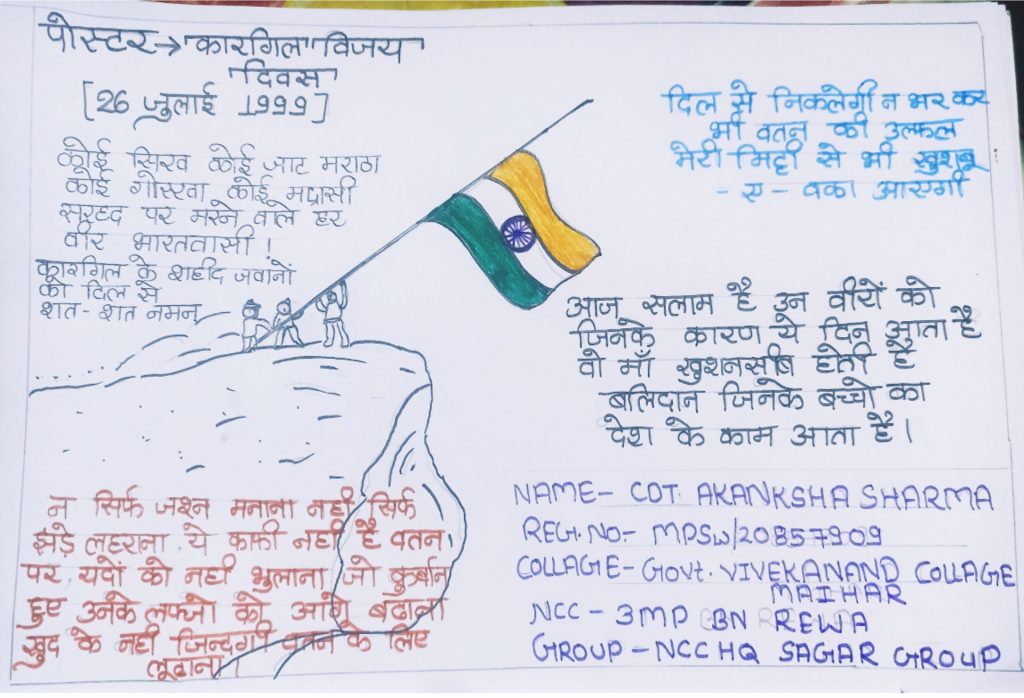 पोस्टर→"कारगिल" विजय
"दिवस"
[26 जुलाई 1999]
कोई सिख कोई जाट मराठा
कोई गोरखा कोई मद्रासी
सरहद पर मरने वाले हर
वीर भारतवासी!
कारगिल के शहीद जवानों
को दिल से
शत-शत नमन
दिल से निकलेगी न भर कर
भी वतन की उल्फत
मेरी मिट्टी से भी खुशबू
- ए - वफा आएगी
आज सलाम है उन वीरों को
जिनके कारण ये दिन आता है
वो माँ खुशनसीब होती है
बलिदान जिनके बच्चो का
देश के काम आता है।
न सिर्फ जश्न मनाना नही सिर्फ
झंड़े लहराना ये काफी नही है वतन
पर यदों को नही भुलाना जो कुर्बान
हुए उनके लफ्जो को आगे बढाना
खुद के नही जिन्दगी वतन के लिए
लूटाना।
NAME- CDT. AKANKSHA SHARMA
REG.NO:- MPSW/20857909
COLLAGE- GOVT. VIVEKANAND COLLAGE
MAIHAR
NCC - 3MP BN REWA
GROUP - NCC HQ SAGAR GROUP